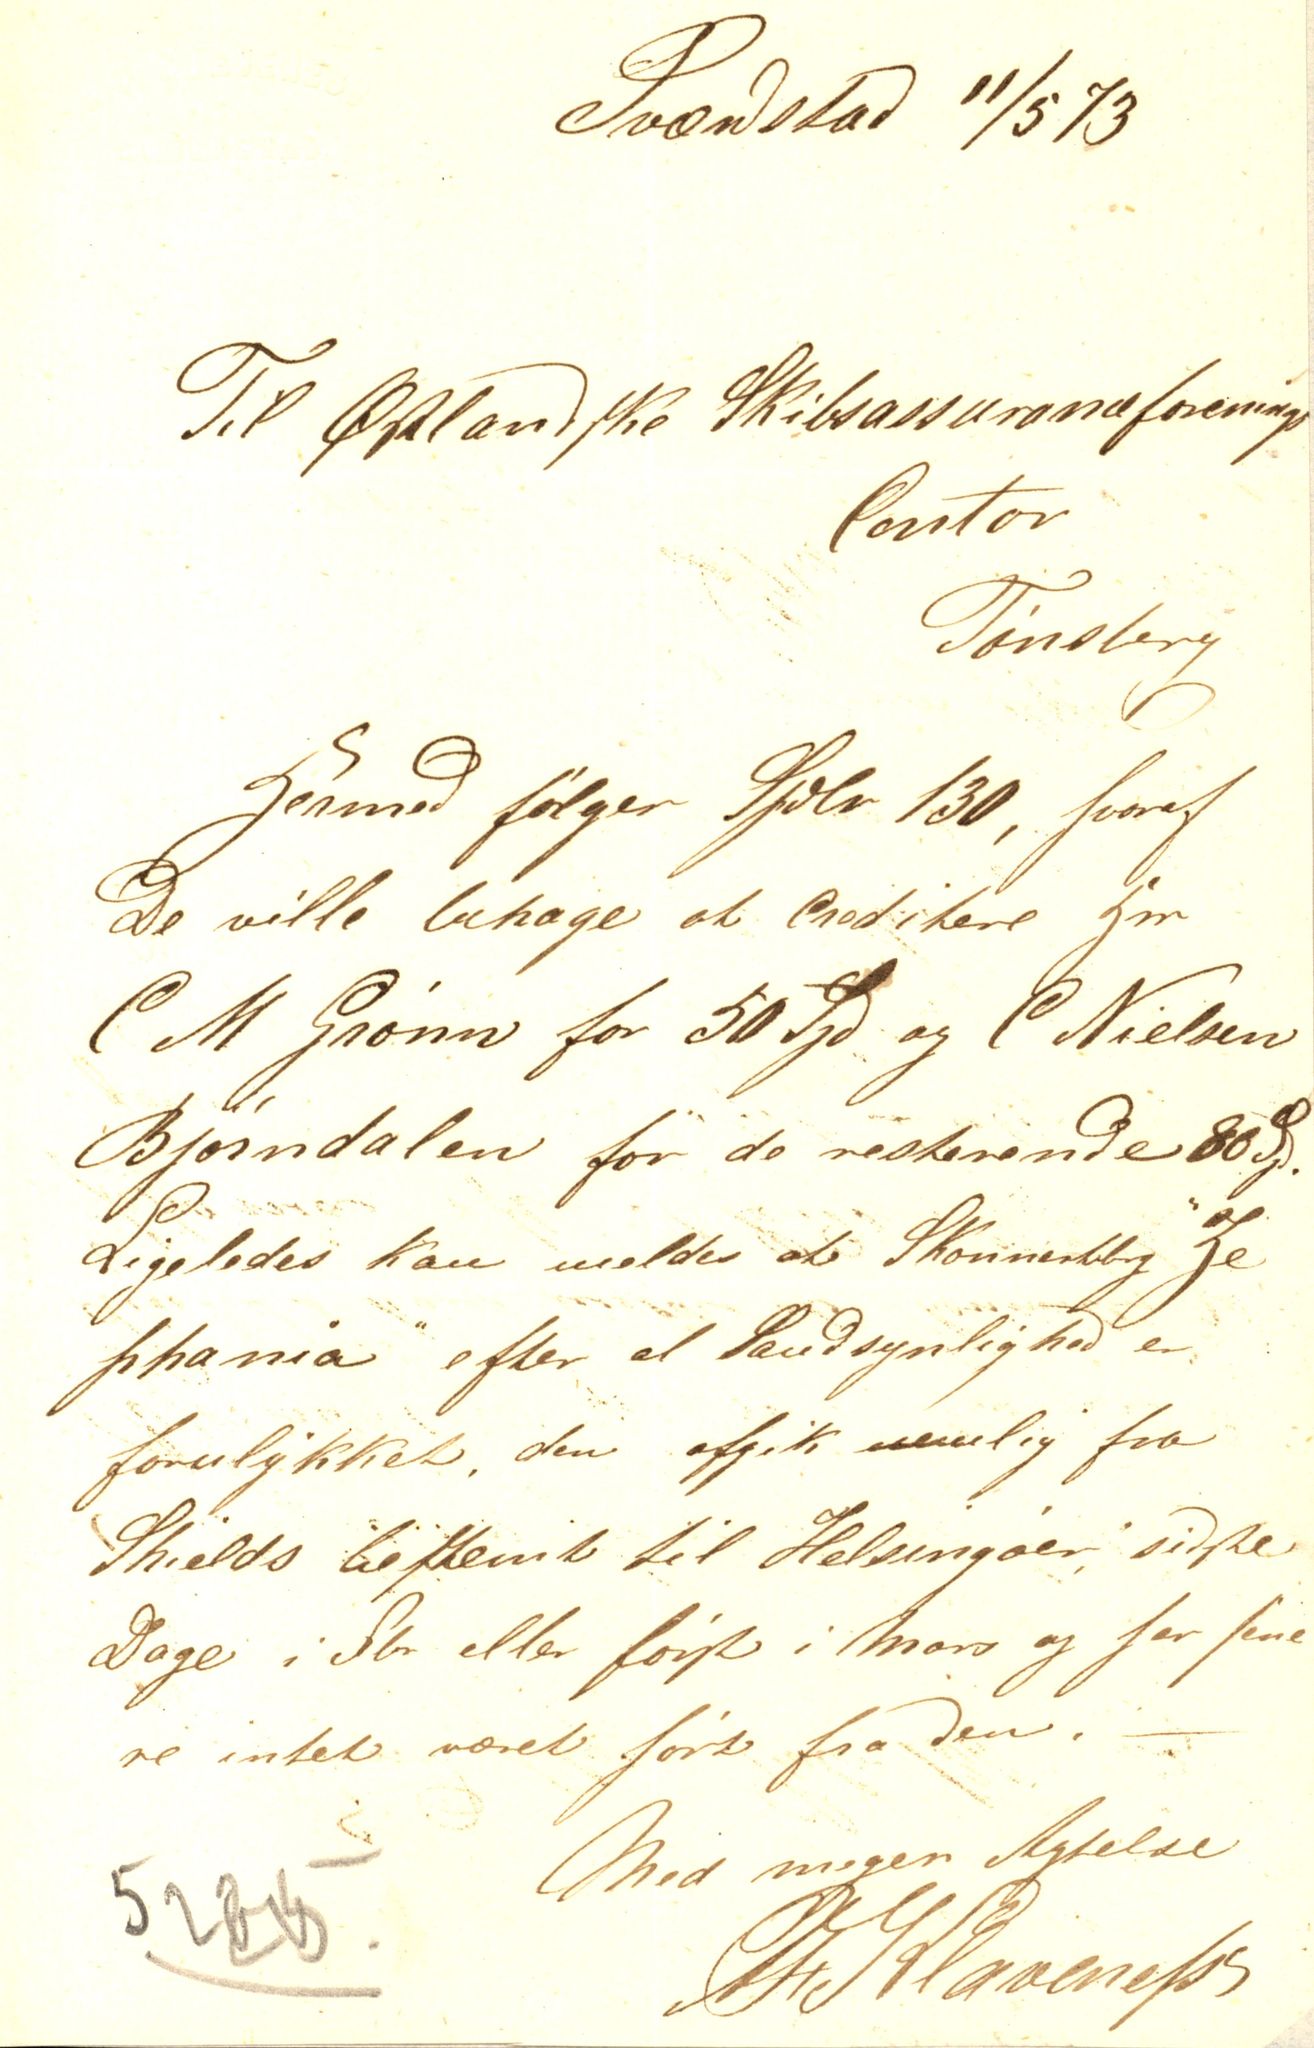 Svendstad 11/5 73
Til Østlandske Skibsassuranceforenings
Contor
Tønsberg
Hermed følger Spdlr 130, hvoraf
De ville behage at creditere Hrr
C M Grønn for 50 Spd og C Nielsen
Bjørndalen for de resterende 80 Spd.
Ligeledes kan meldes at Skonnertbrg "Ze
phania" efter al Sandsynlighed er
forulykket, den afgik nemlig fra
Shields bestemt til Helsingøer, sidste
Dage i Fbr eller først i Mars og har sene
re intet været hørt fra den. —
Med megen Agtelse
Klaveness